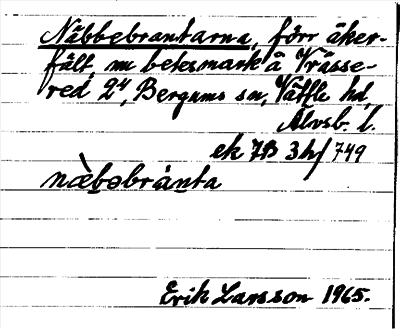 Näbbebrantarna, förr åker-
fält, nu betesmark å Vråsse-
red 2⁴, Bergums sn, Vättle hd,
Älvsb. l.
ek 7B 3hf 749
næ̀bəbrànta
Erik Larsson 1965.